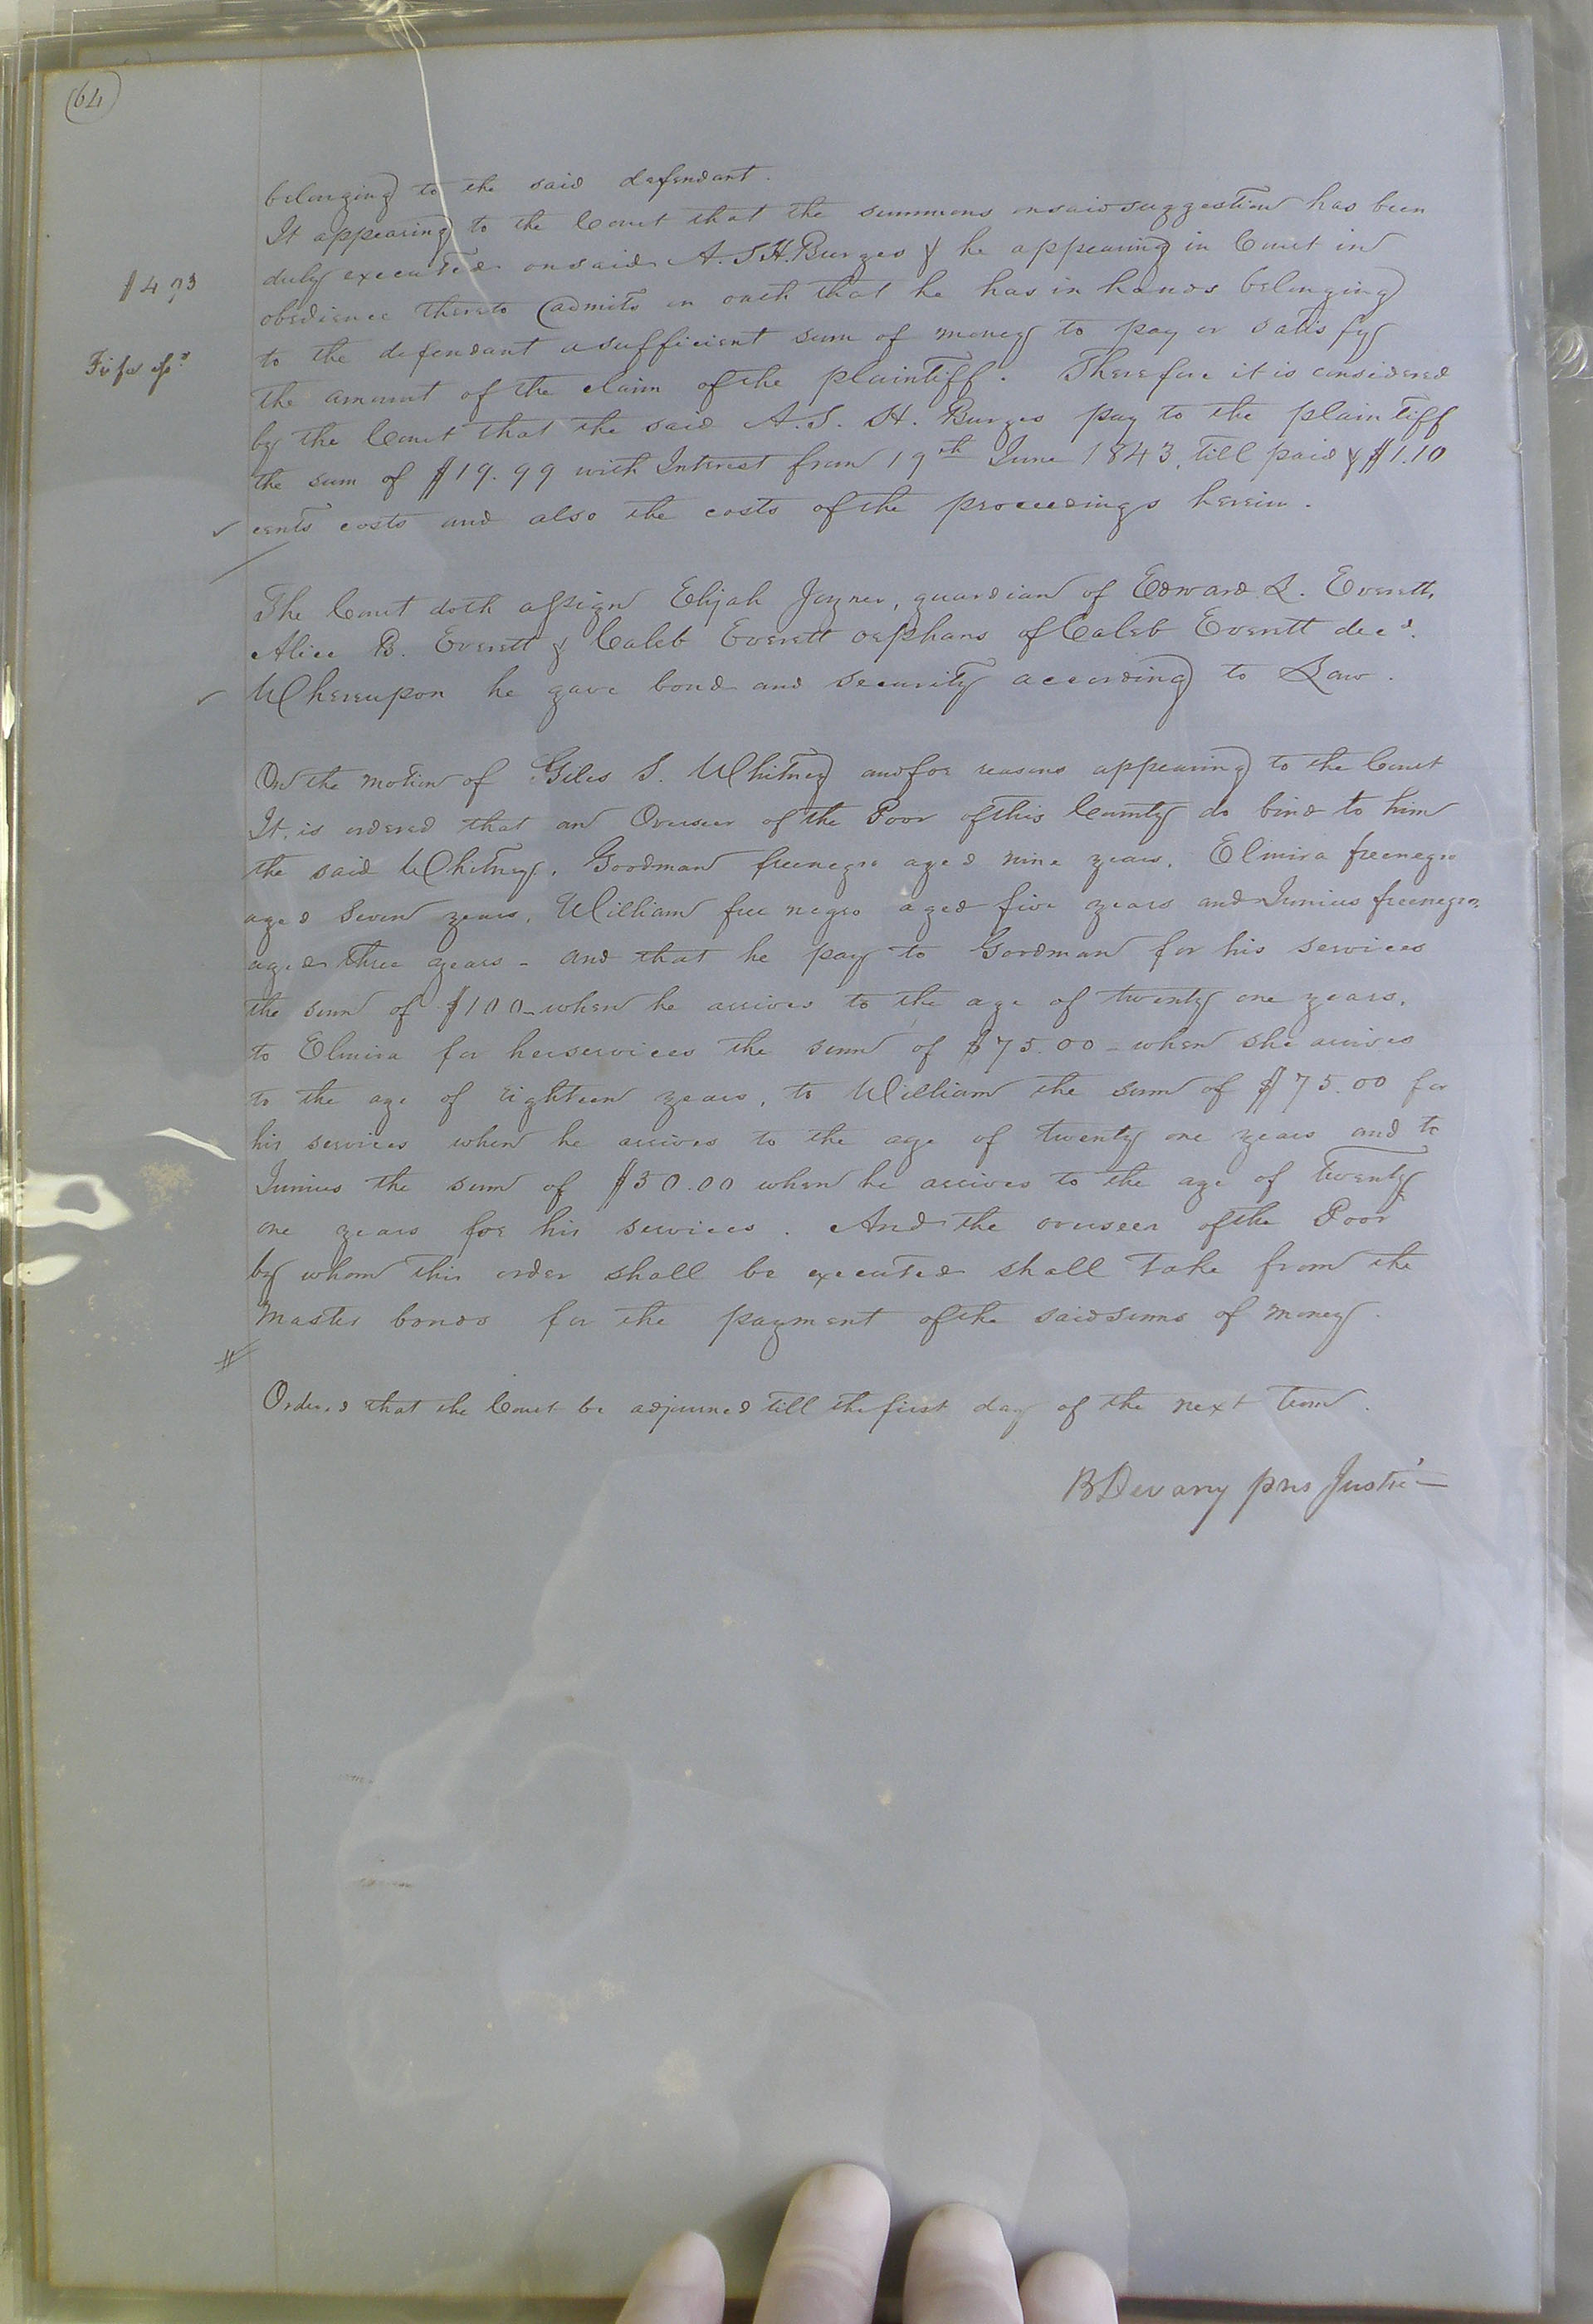 (64)
belonging to the said defendant.
It appearing to the Court that the summons on said suggestion has been
duly executed on said A. S. H. Burges & he appearing in Court in
$4 93
obedience thereto admits on oath that he has in hands belonging
to the defendant a sufficient sum of money to pay or satisfy
Fi fa
the amount of the claim of the plaintiff. Therefore it is considered
by the Court that the said A. S. H. Burges pay to the plaintiff
the sum of $19.99 with Interest from 19th June 1843, till paid & $1.10
cents costs and also the costs of the proceedings herein.
The Court doth assign Elijah Joyner, guardian of Edward L. Everett,
Alice B. Everett & Caleb Everett orphans of Caleb Everett decd.
Whereupon he gave bond and security according to Law.
On the motion of Giles S. Whitney and for reasons appearing to the Court
It, is ordered that an Overseer of the Poor of this County do bind to him
the said Whitney, Goodman free negro aged nine years, Elmira free negro
aged Seven years, William free negro aged five years and Junius free negro,
aged Three years - and that he pay to Goodman for his services
the sum of $100 - when he arrives to the age of twenty one years,
to Elmira for her services the sum of $75.00 - when she arrives
to the age of Eighteen years, to William the sum of $75.00 for
his services when he arrives to the age of twenty one years and to
Junius the sum of $50.00 when he arrives to the age of twenty
one years for his services. And the overseer of the Poor
by whom this order shall be executed shall take from the
Master bonds for the payment of the said sums of money.
Ordered that the Court be adjourned till the first day of the next term.
B Devany pres Justice